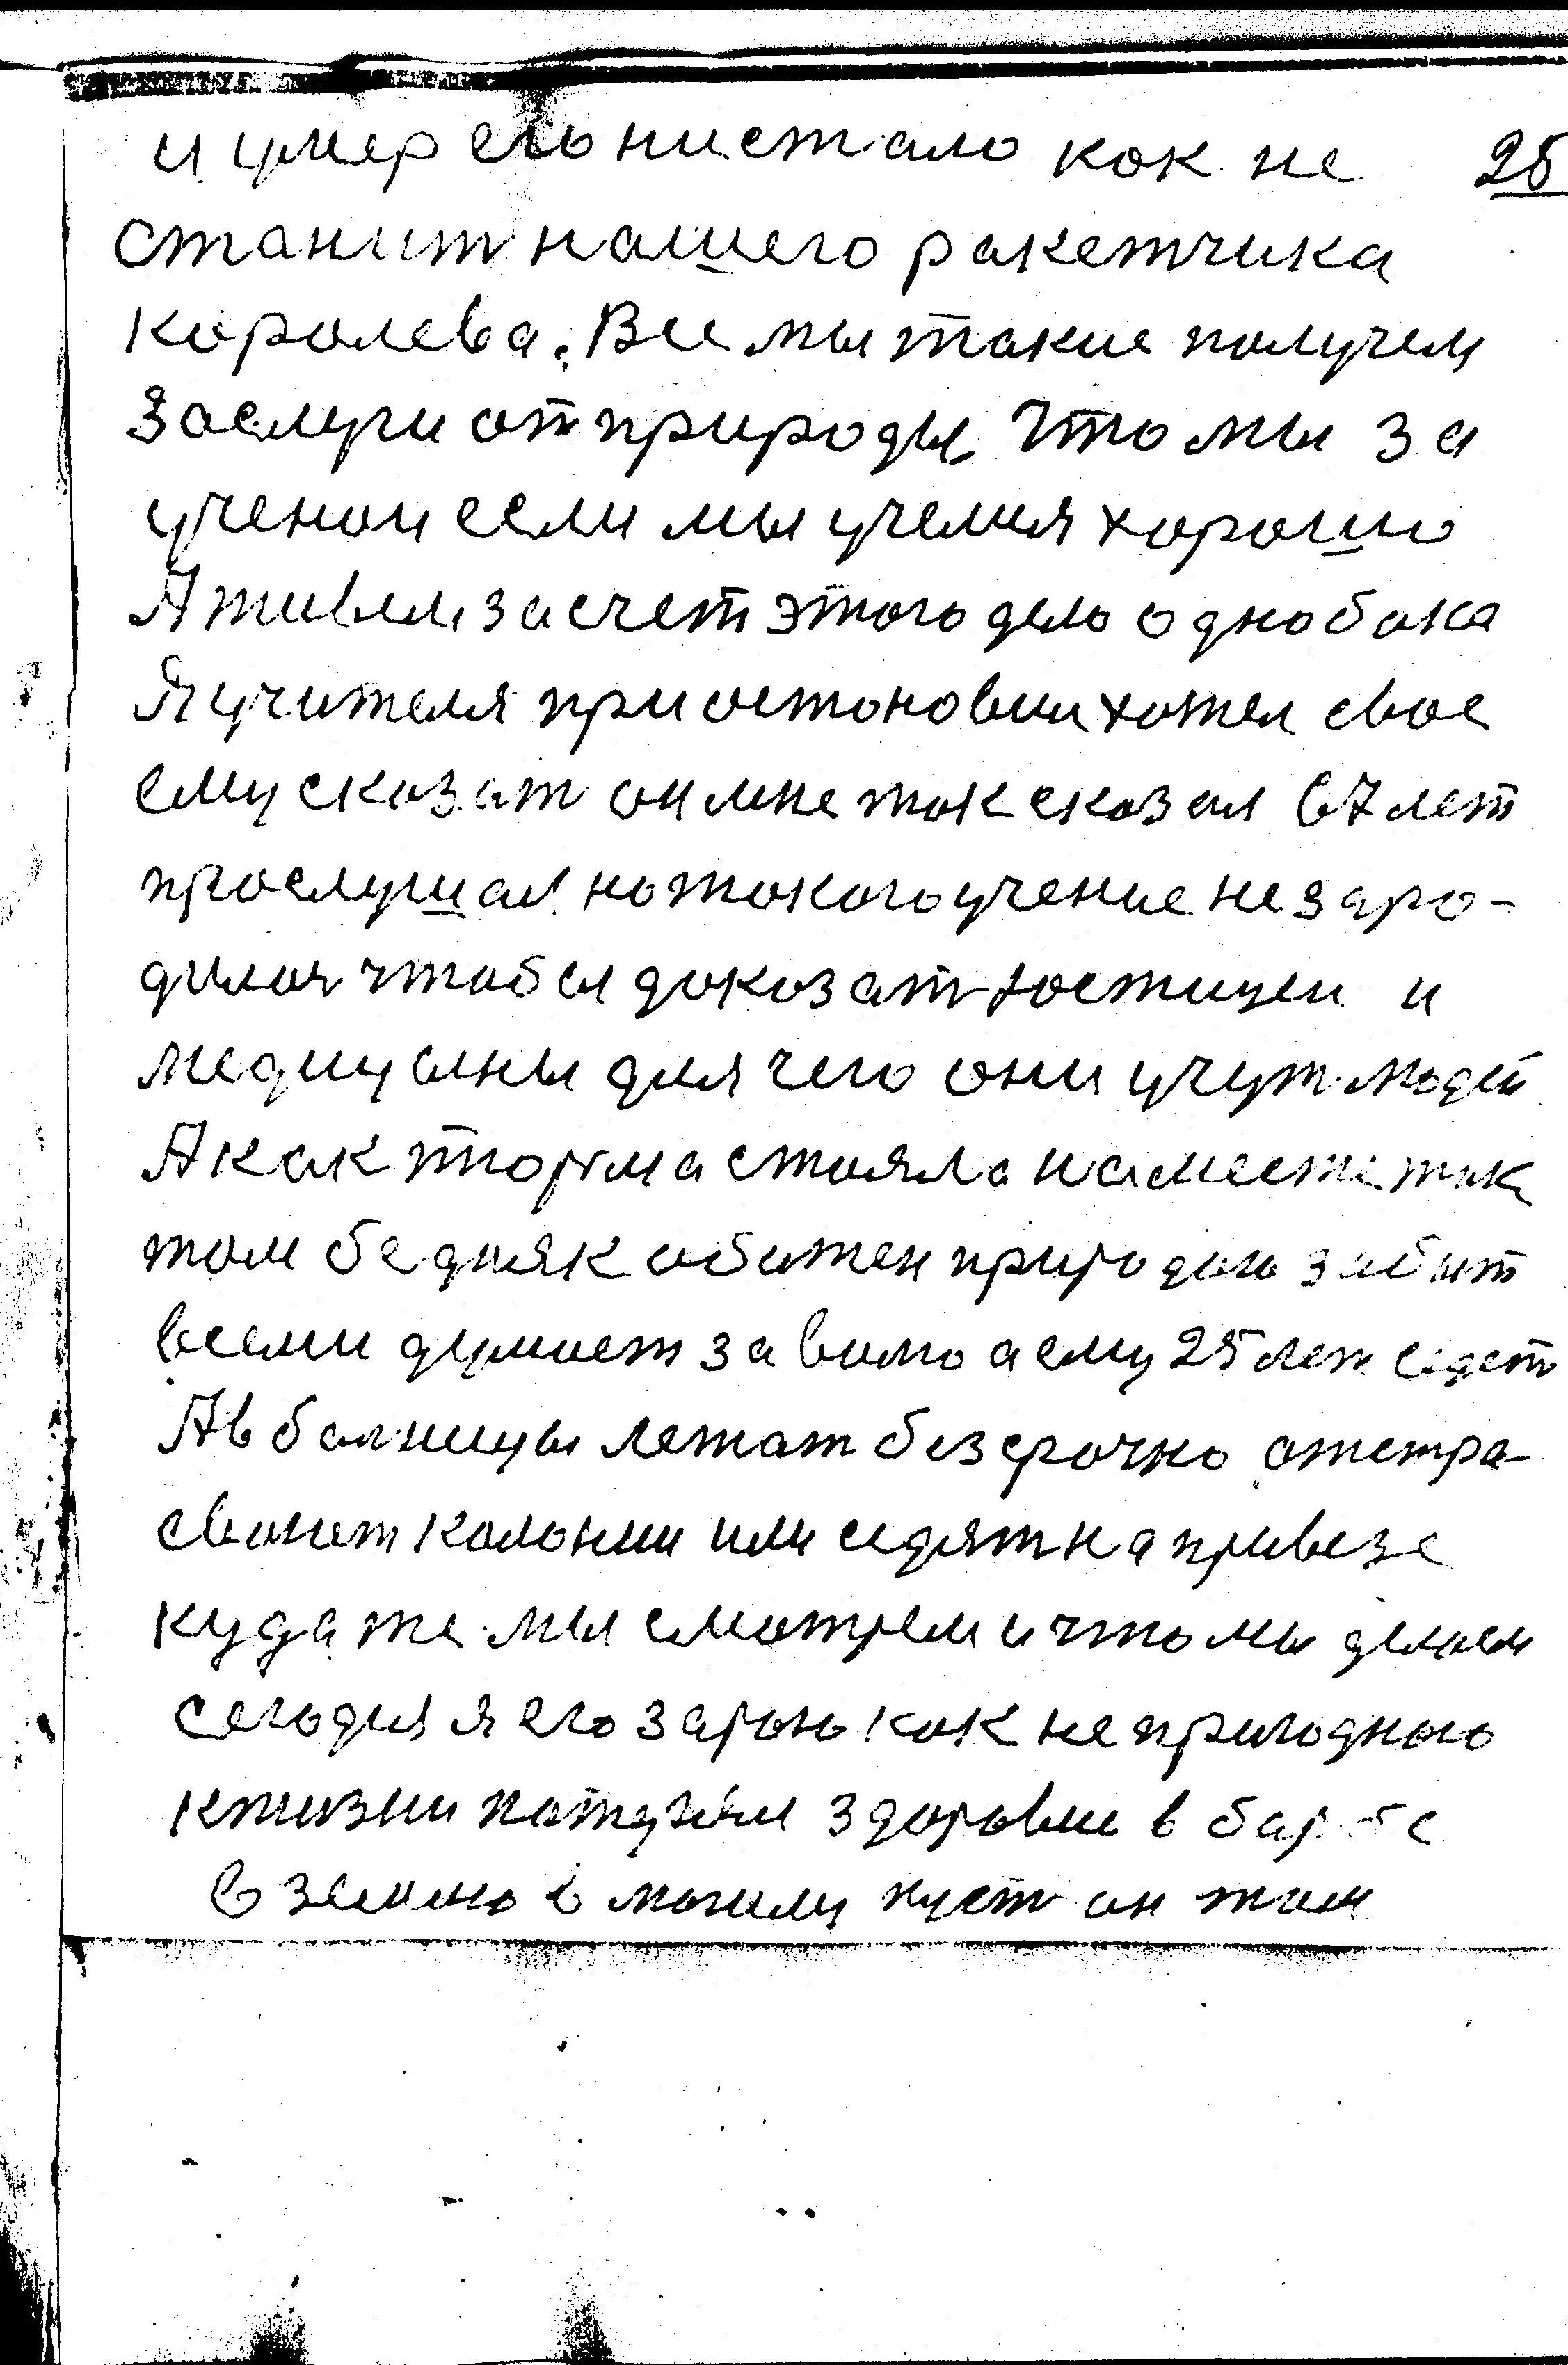 и умер его нистало как не 25
станит нашего ракетчика
Королева. Все мы такие получем
заслуги от природы, Что мы за
ученои если мы учемся хорошо
А живем за счет этого дело однобока
Я учителя приостоновил хотел свое
ему сказат он мне так сказал 67 лет
прослушал но такого учение не заро-
дилоя чтобы доказат юстицеи и
медицыны для чего они учут людей
А как тюрма стояла на месте так
там бедняк обижен природою забыт
всеми думает за волю а ему 25 лет сидет
А в болницы лежат безсрочно отстра-
свают колонии или сидят на привезе
куда же мы смотрем и что мы делаем
сегодня я его зарою как не пригодного
к жизни потерял здоровие в борбе
в землю в могилу пуст он там